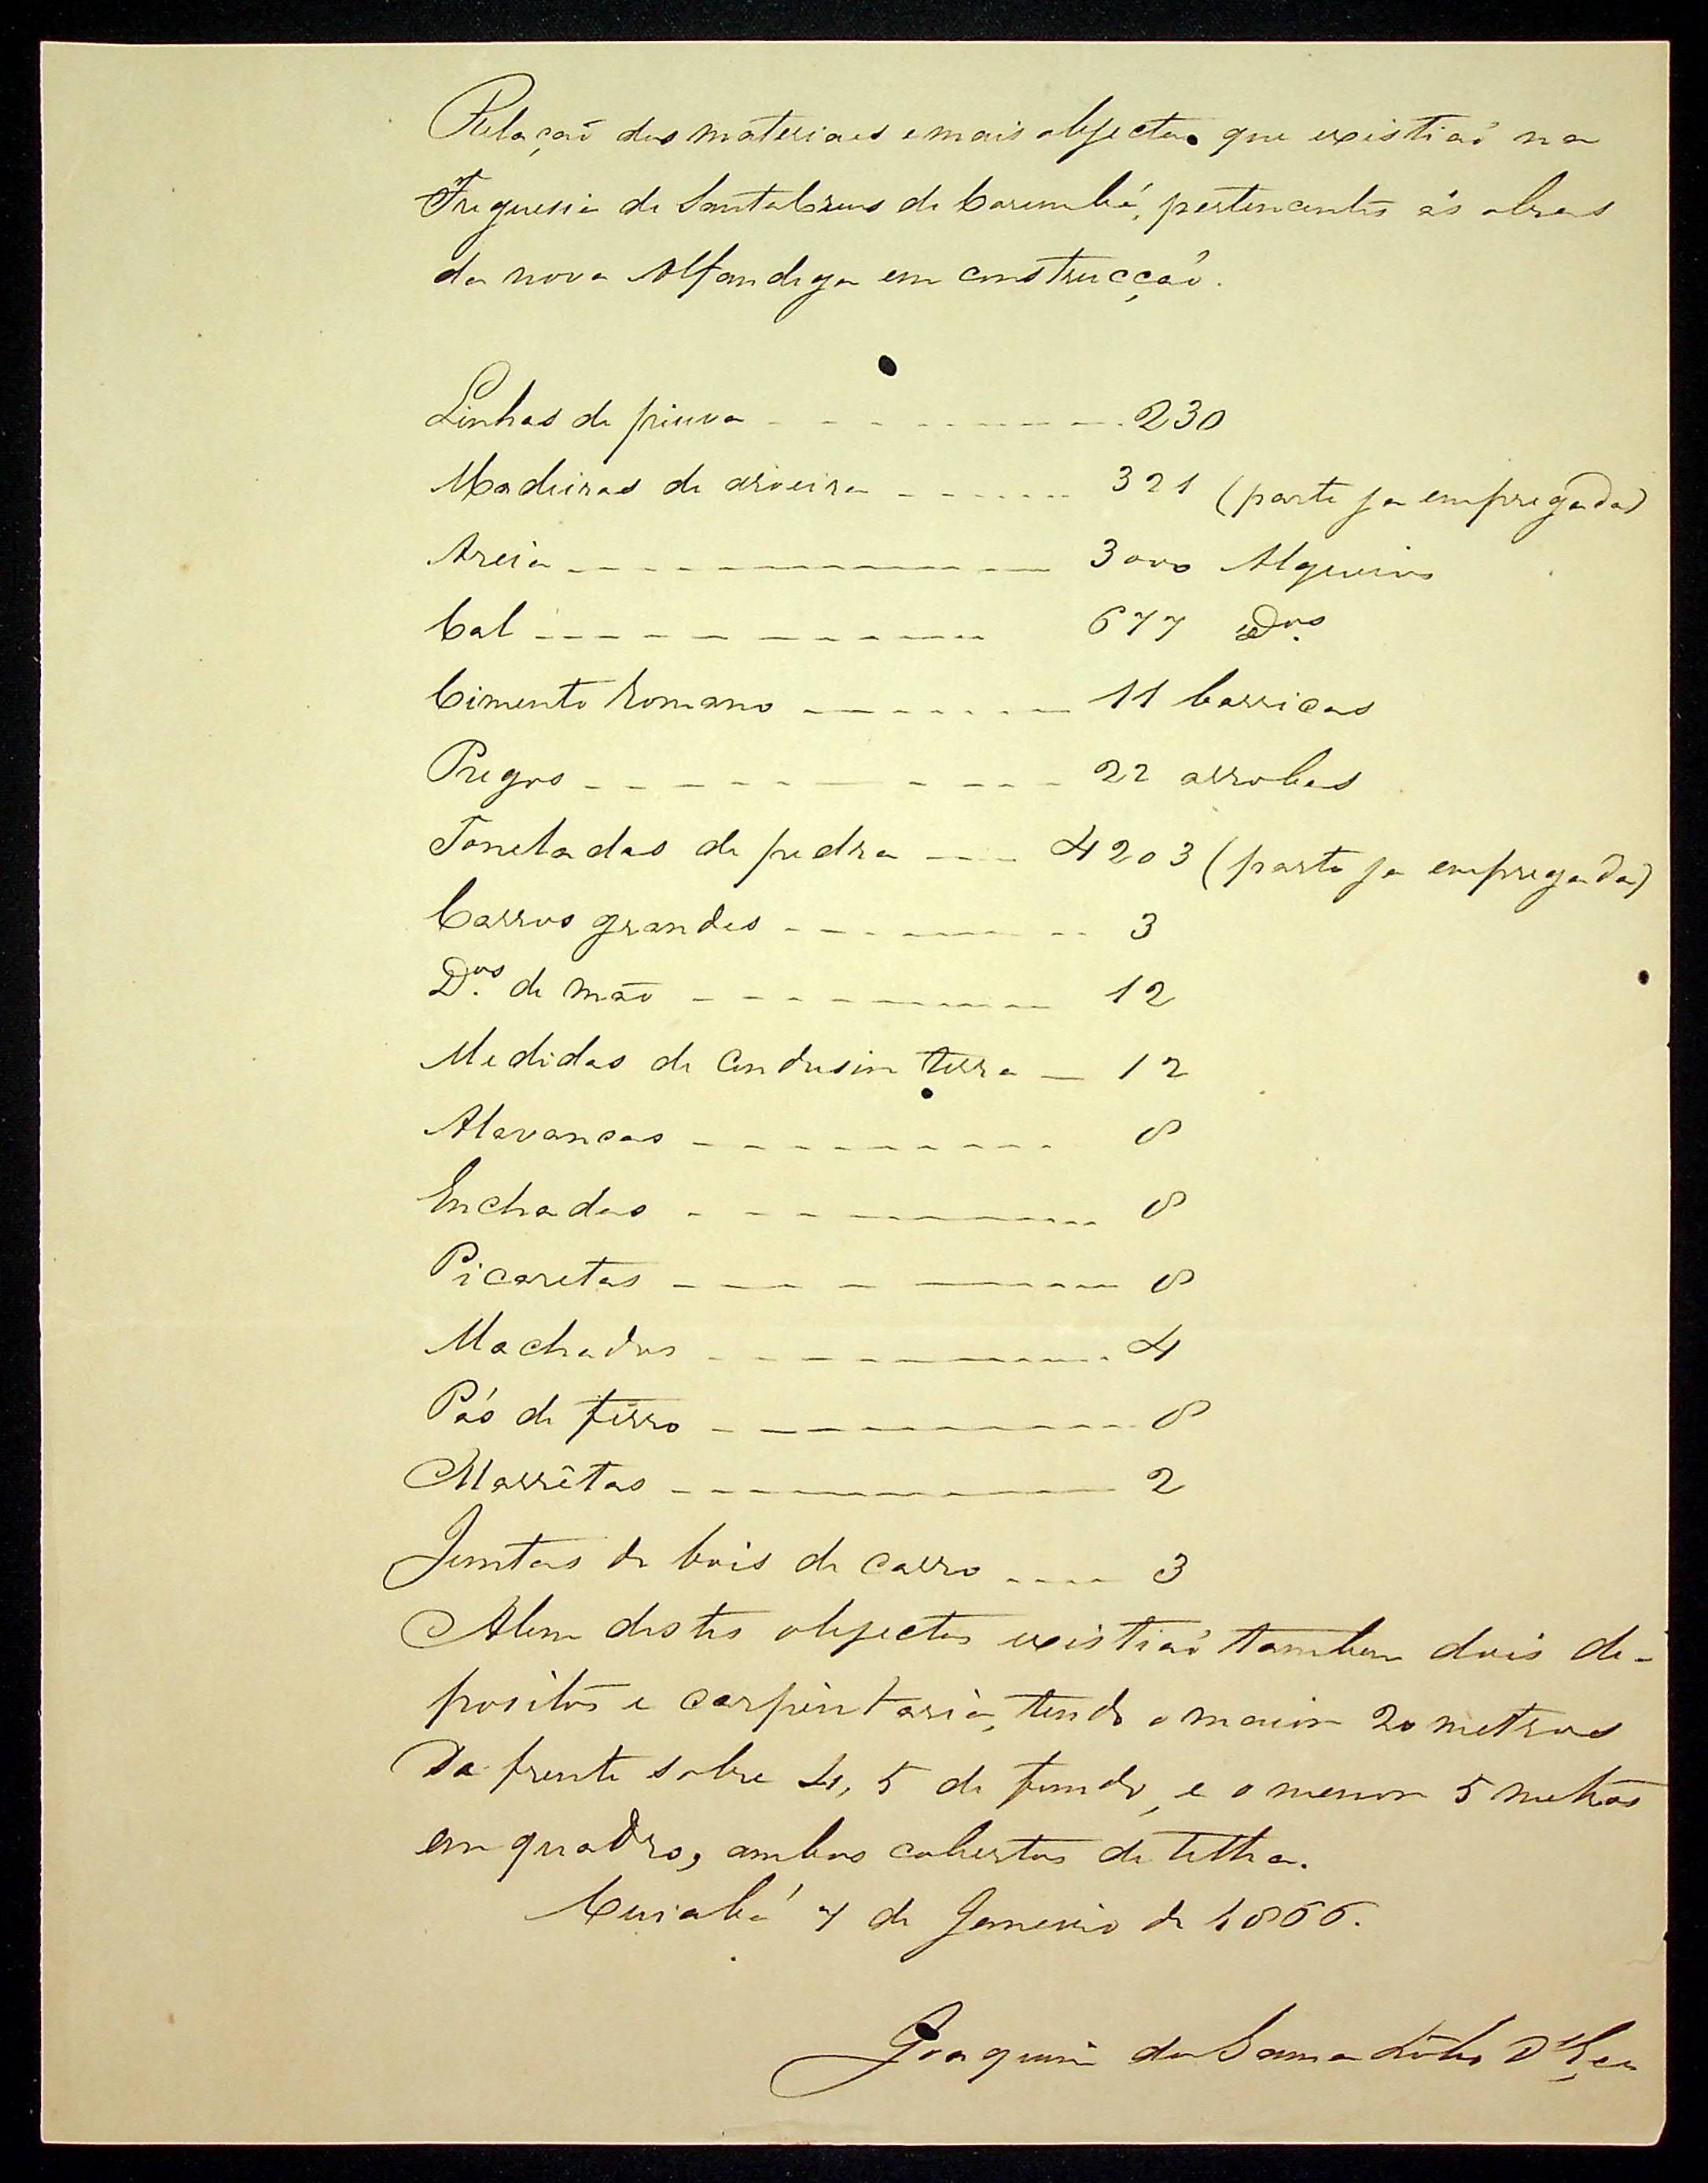 Relação dos materiaes e mais objectos que existiaõ na
Freguesia de Santa Cruz de Corumbá, pertencentes ás obras
da nova Alfandega em construcçaõ.
Linhas de piuva - - - - - - - - - 230
Madeiras de aroeira - - - - - - 321 (parte ja empregada)
Areia - - - - - - - - - - - 3000 Alqueires
Cal - - - - - - - - - - - 677 Dos.
Cimento Romano - - - - - - - 11 barricas
Pregos - - - - - - - - - - 22 arrobas
Toneladas de pedra - - - 4203 (parte ja empregada)
Carros grandes - - - - - - - - 3
Dos. de mão - - - - - - - - - 12
Medidas de condusir terra - 12
Alavancas - - - - - - - - - 8
Enchadas - - - - - - - - - - 8
Picaretas - - - - - - - - - - 8
Machados - - - - - - - - - - 4
Pás de ferro - - - - - - - - - 8
Marrêtas - - - - - - - - - - 2
Juntas de bois de carro - - - - 3
Alem destes objectos existiaõ tambem dois de-
positos e carpintaria, tendo o maior 20 metros
de frente sobre 4,5 de fundo, e o menor 5 metros
em quadro, ambos cobertos de telha.
Cuiabá 7 de Janeiro de 1866.
Joaquim da Gama Lobo D'Eça